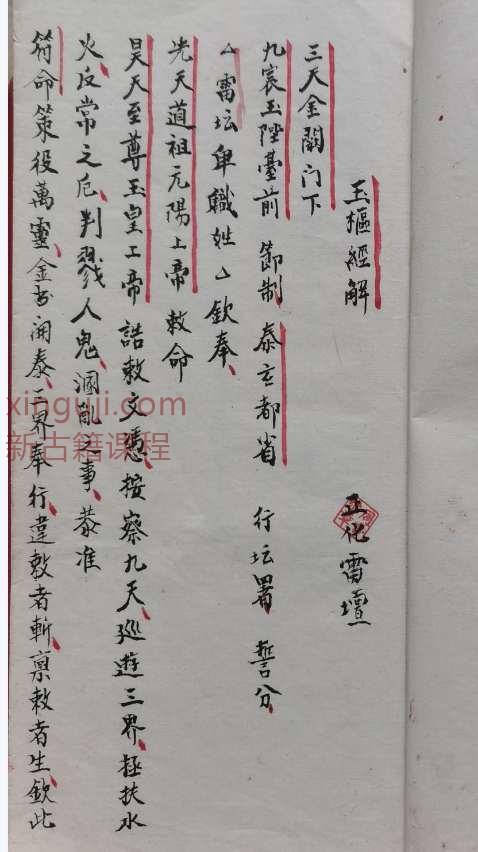 玉樞經解
正化雷壇
三天金闕门下
九宸玉陛臺前 節制 泰玄都省 行坛署 誓分
△雷坛卑職姓△欽奉
先天道祖元陽上帝敕命
昊天至尊玉皇上帝誥敕文憑按察九天巡遊三界拯扶水
火反常之厄判戮人鬼溷亂之事恭准
符命策役萬靈金书開泰三界奉行違敕者斬禀敕者生欽此
xinguji.com
新古籍课程